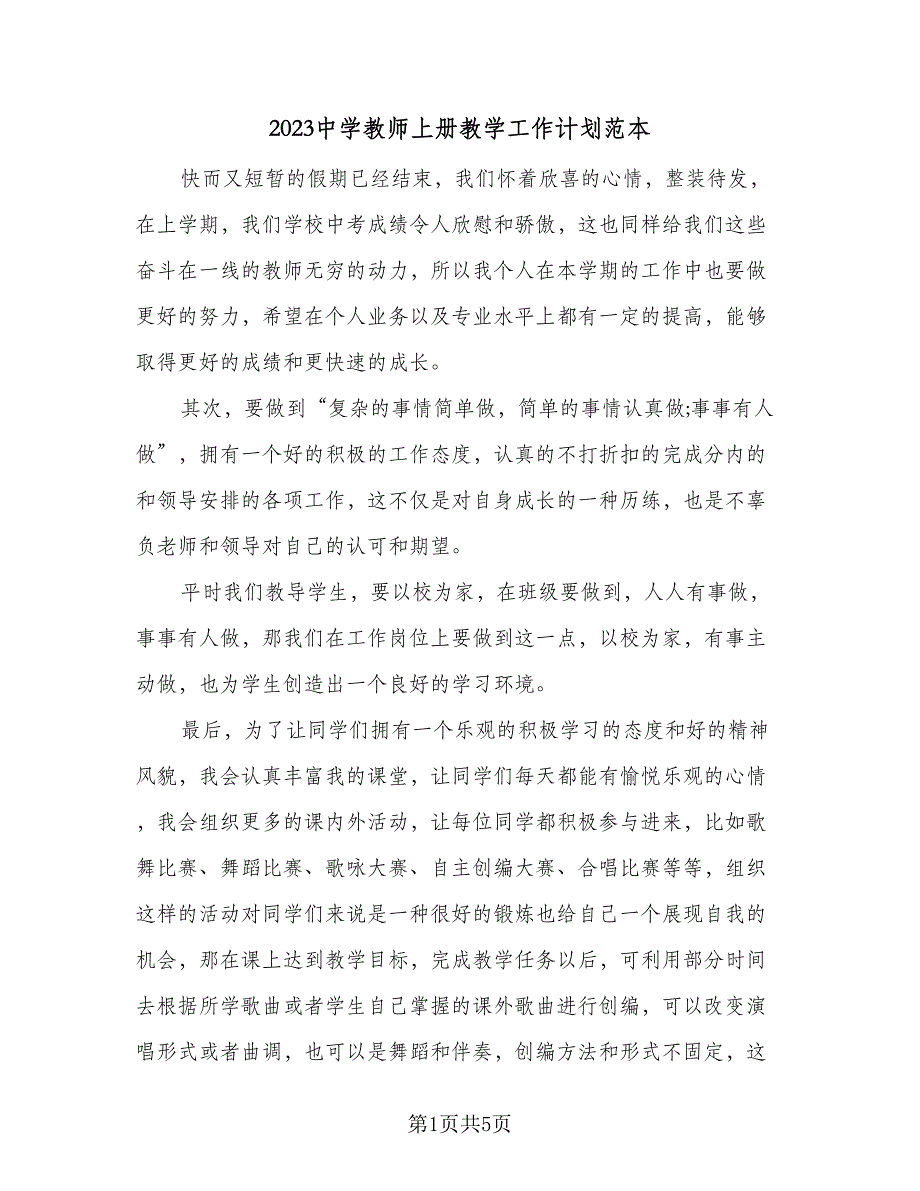 2023中学教师上册教学工作计划范本
快而又短暂的假期已经结束，我们怀着欣喜的心情，整装待发，
在上学期，我们学校中考成绩令人欣慰和骄傲，这也同样给我们这些
奋斗在一线的教师无穷的动力，所以我个人在本学期的工作中也要做
更好的努力，希望在个人业务以及专业水平上都有一定的提高，能够
取得更好的成绩和更快速的成长。
其次，要做到“复杂的事情简单做，简单的事情认真做;事事有人
做”，拥有一个好的积极的工作态度，认真的不打折扣的完成分内的
和领导安排的各项工作，这不仅是对自身成长的一种历练，也是不辜
负老师和领导对自己的认可和期望。
平时我们教导学生，要以校为家，在班级要做到，人人有事做，
事事有人做，那我们在工作岗位上要做到这一点，以校为家，有事主
动做，也为学生创造出一个良好的学习环境。
最后，为了让同学们拥有一个乐观的积极学习的态度和好的精神
风貌，我会认真丰富我的课堂，让同学们每天都能有愉悦乐观的心情
，我会组织更多的课内外活动，让每位同学都积极参与进来，比如歌
舞比赛、舞蹈比赛、歌咏大赛、自主创编大赛、合唱比赛等等，组织
这样的活动对同学们来说是一种很好的锻炼也给自己一个展现自我的
机会，那在课上达到教学目标，完成教学任务以后，可利用部分时间
去根据所学歌曲或者学生自己掌握的课外歌曲进行创编，可以改变演
唱形式或者曲调，也可以是舞蹈和伴奏，创编方法和形式不固定，这
第1页共5页